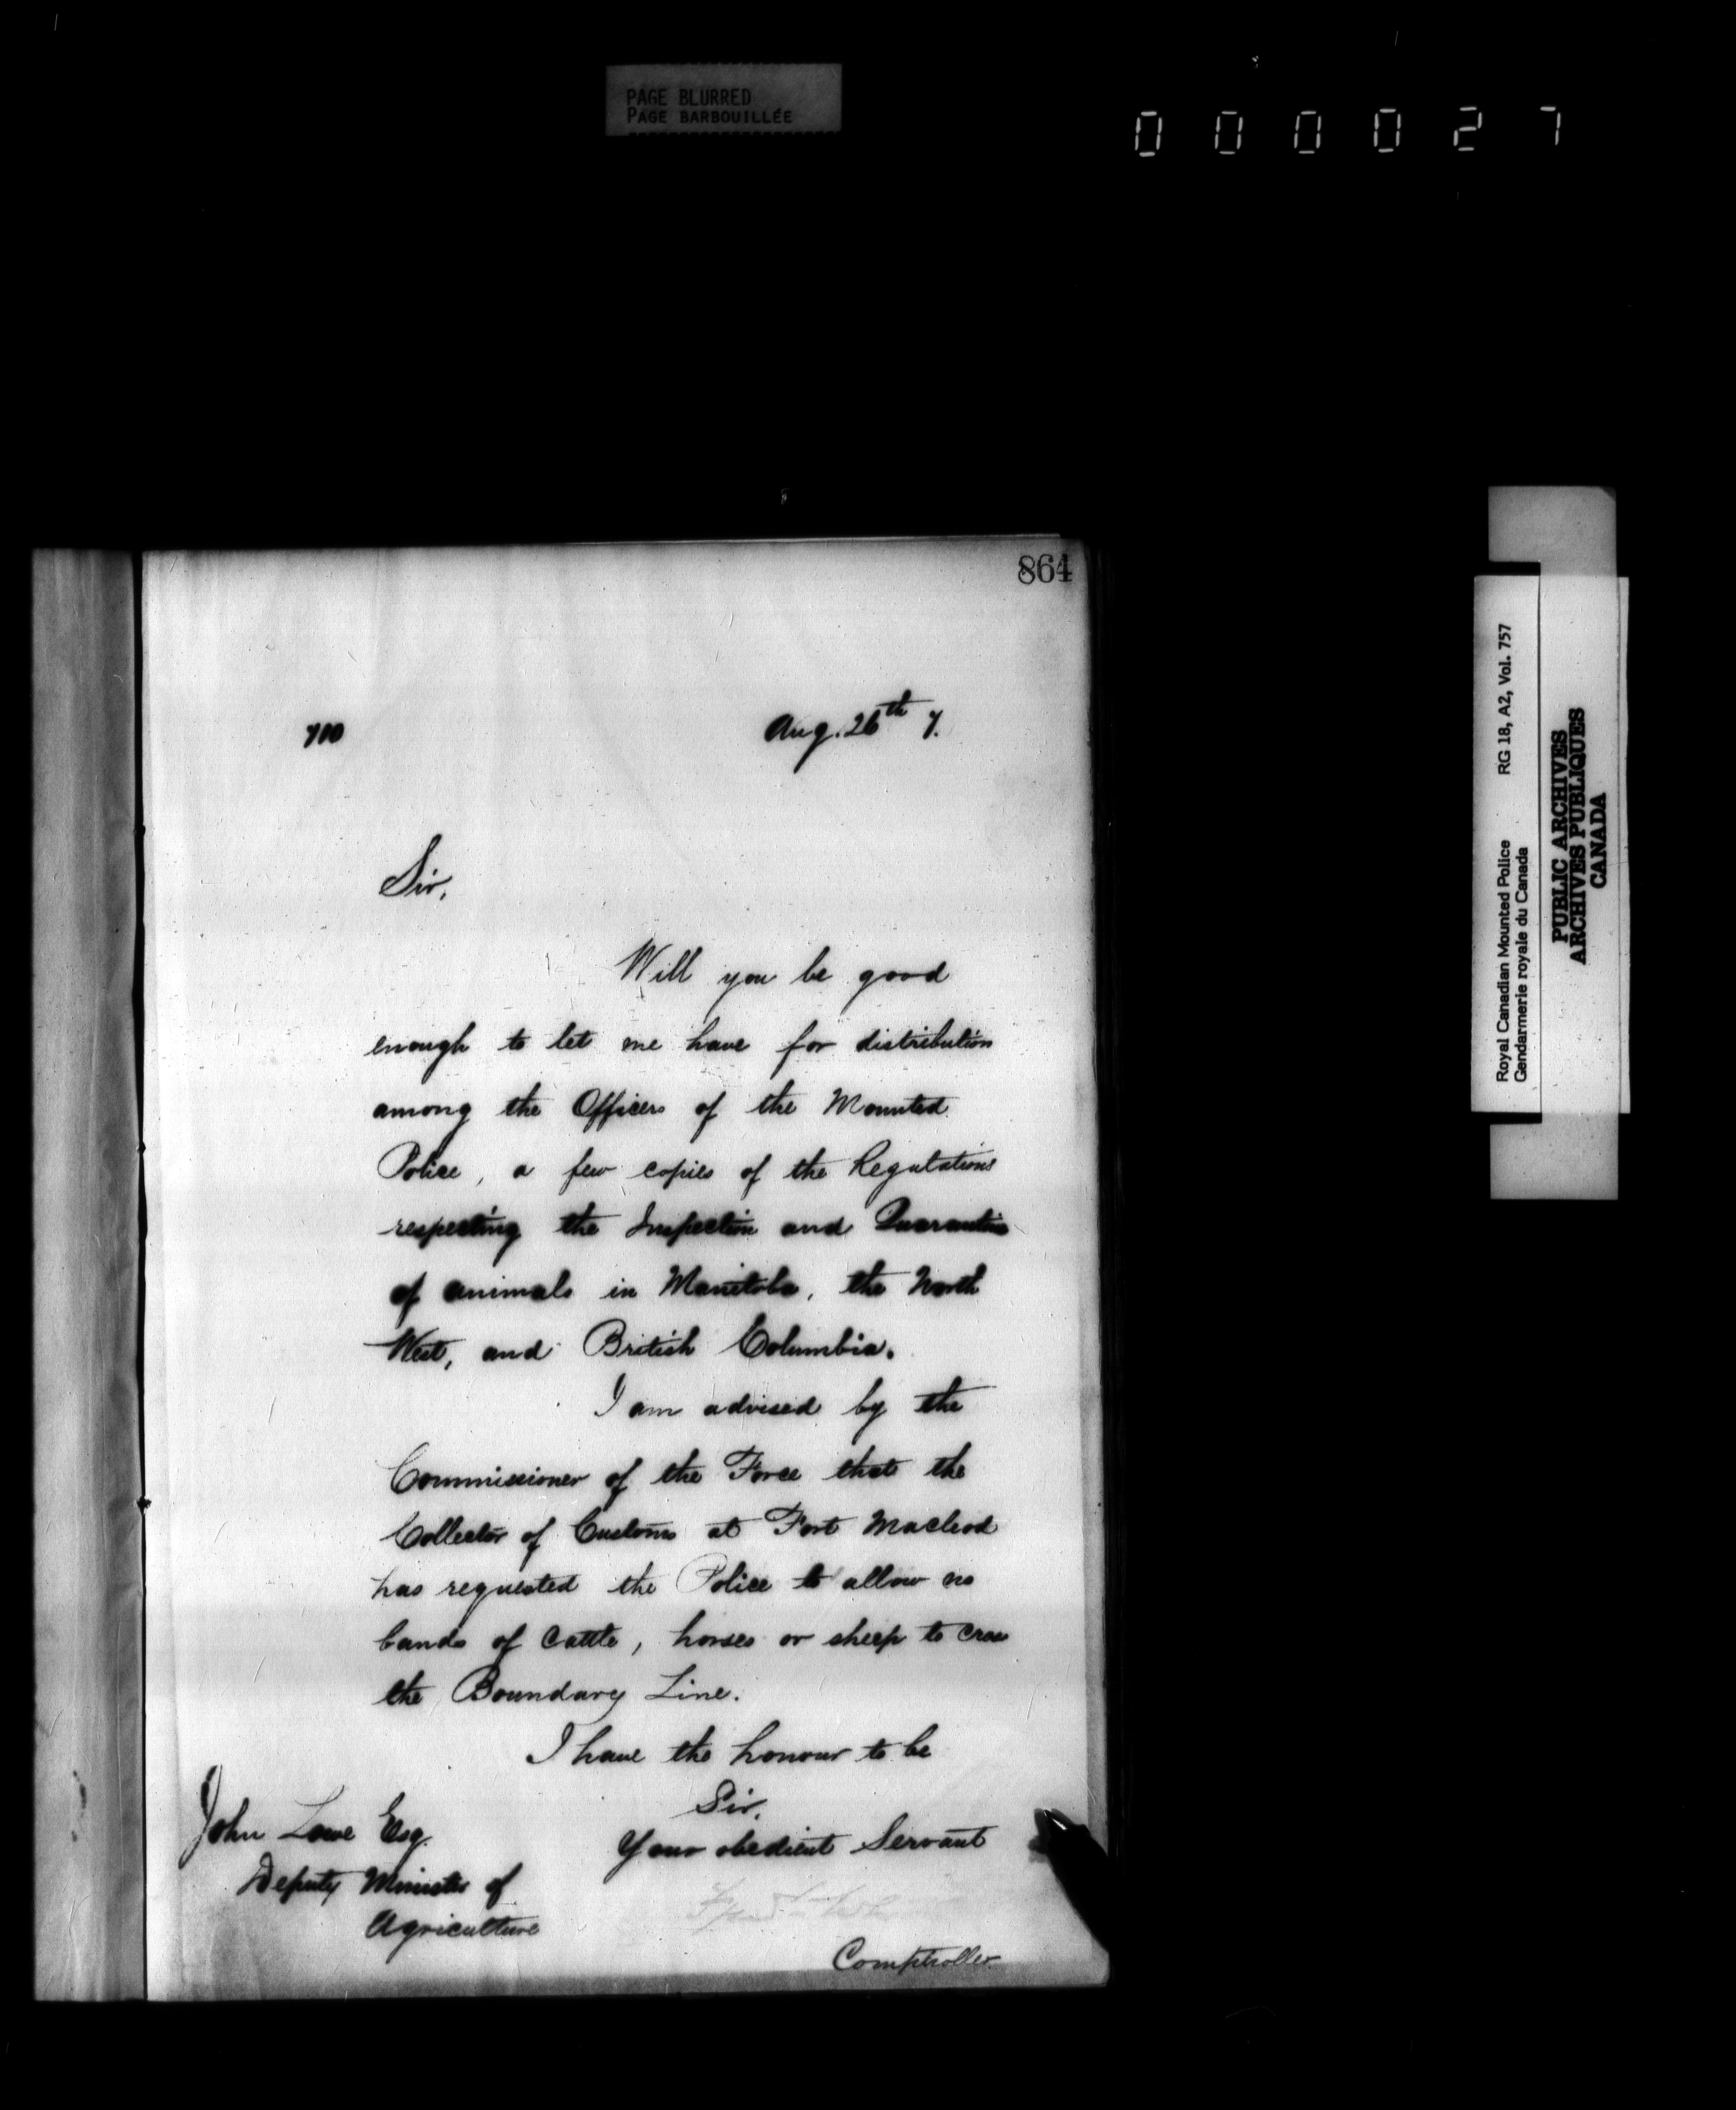 PAGE BLURRED
PAGE BARBOUILLÉE
000027
864
710
Aug. 26th 7.
Sir,
Will you be good
enough to let me have for distribution
among the Officers of the Mounted
Police, a few copies of the Regulations
respecting the Inspection and Quarantine
of animals in Manitoba, the North
West, and British Columbia.
I am advised by the
Commissioner of the Force that the
Collector of Customs at Fort Macleod
has requested the Police to allow no
bands of Cattle, horses or sheep to cross
the Boundary Line.
I have the honour to be
Sir,
Your obedient Servant
John Lowe Esq.
Deputy Minister of
Agriculture
Comptroller
Royal Canadian Mounted Police RG 18, A2, Vol. 757
Gendarmerie royale du Canada
PUBLIC ARCHIVES
ARCHIVES PUBLIQUES
CANADA